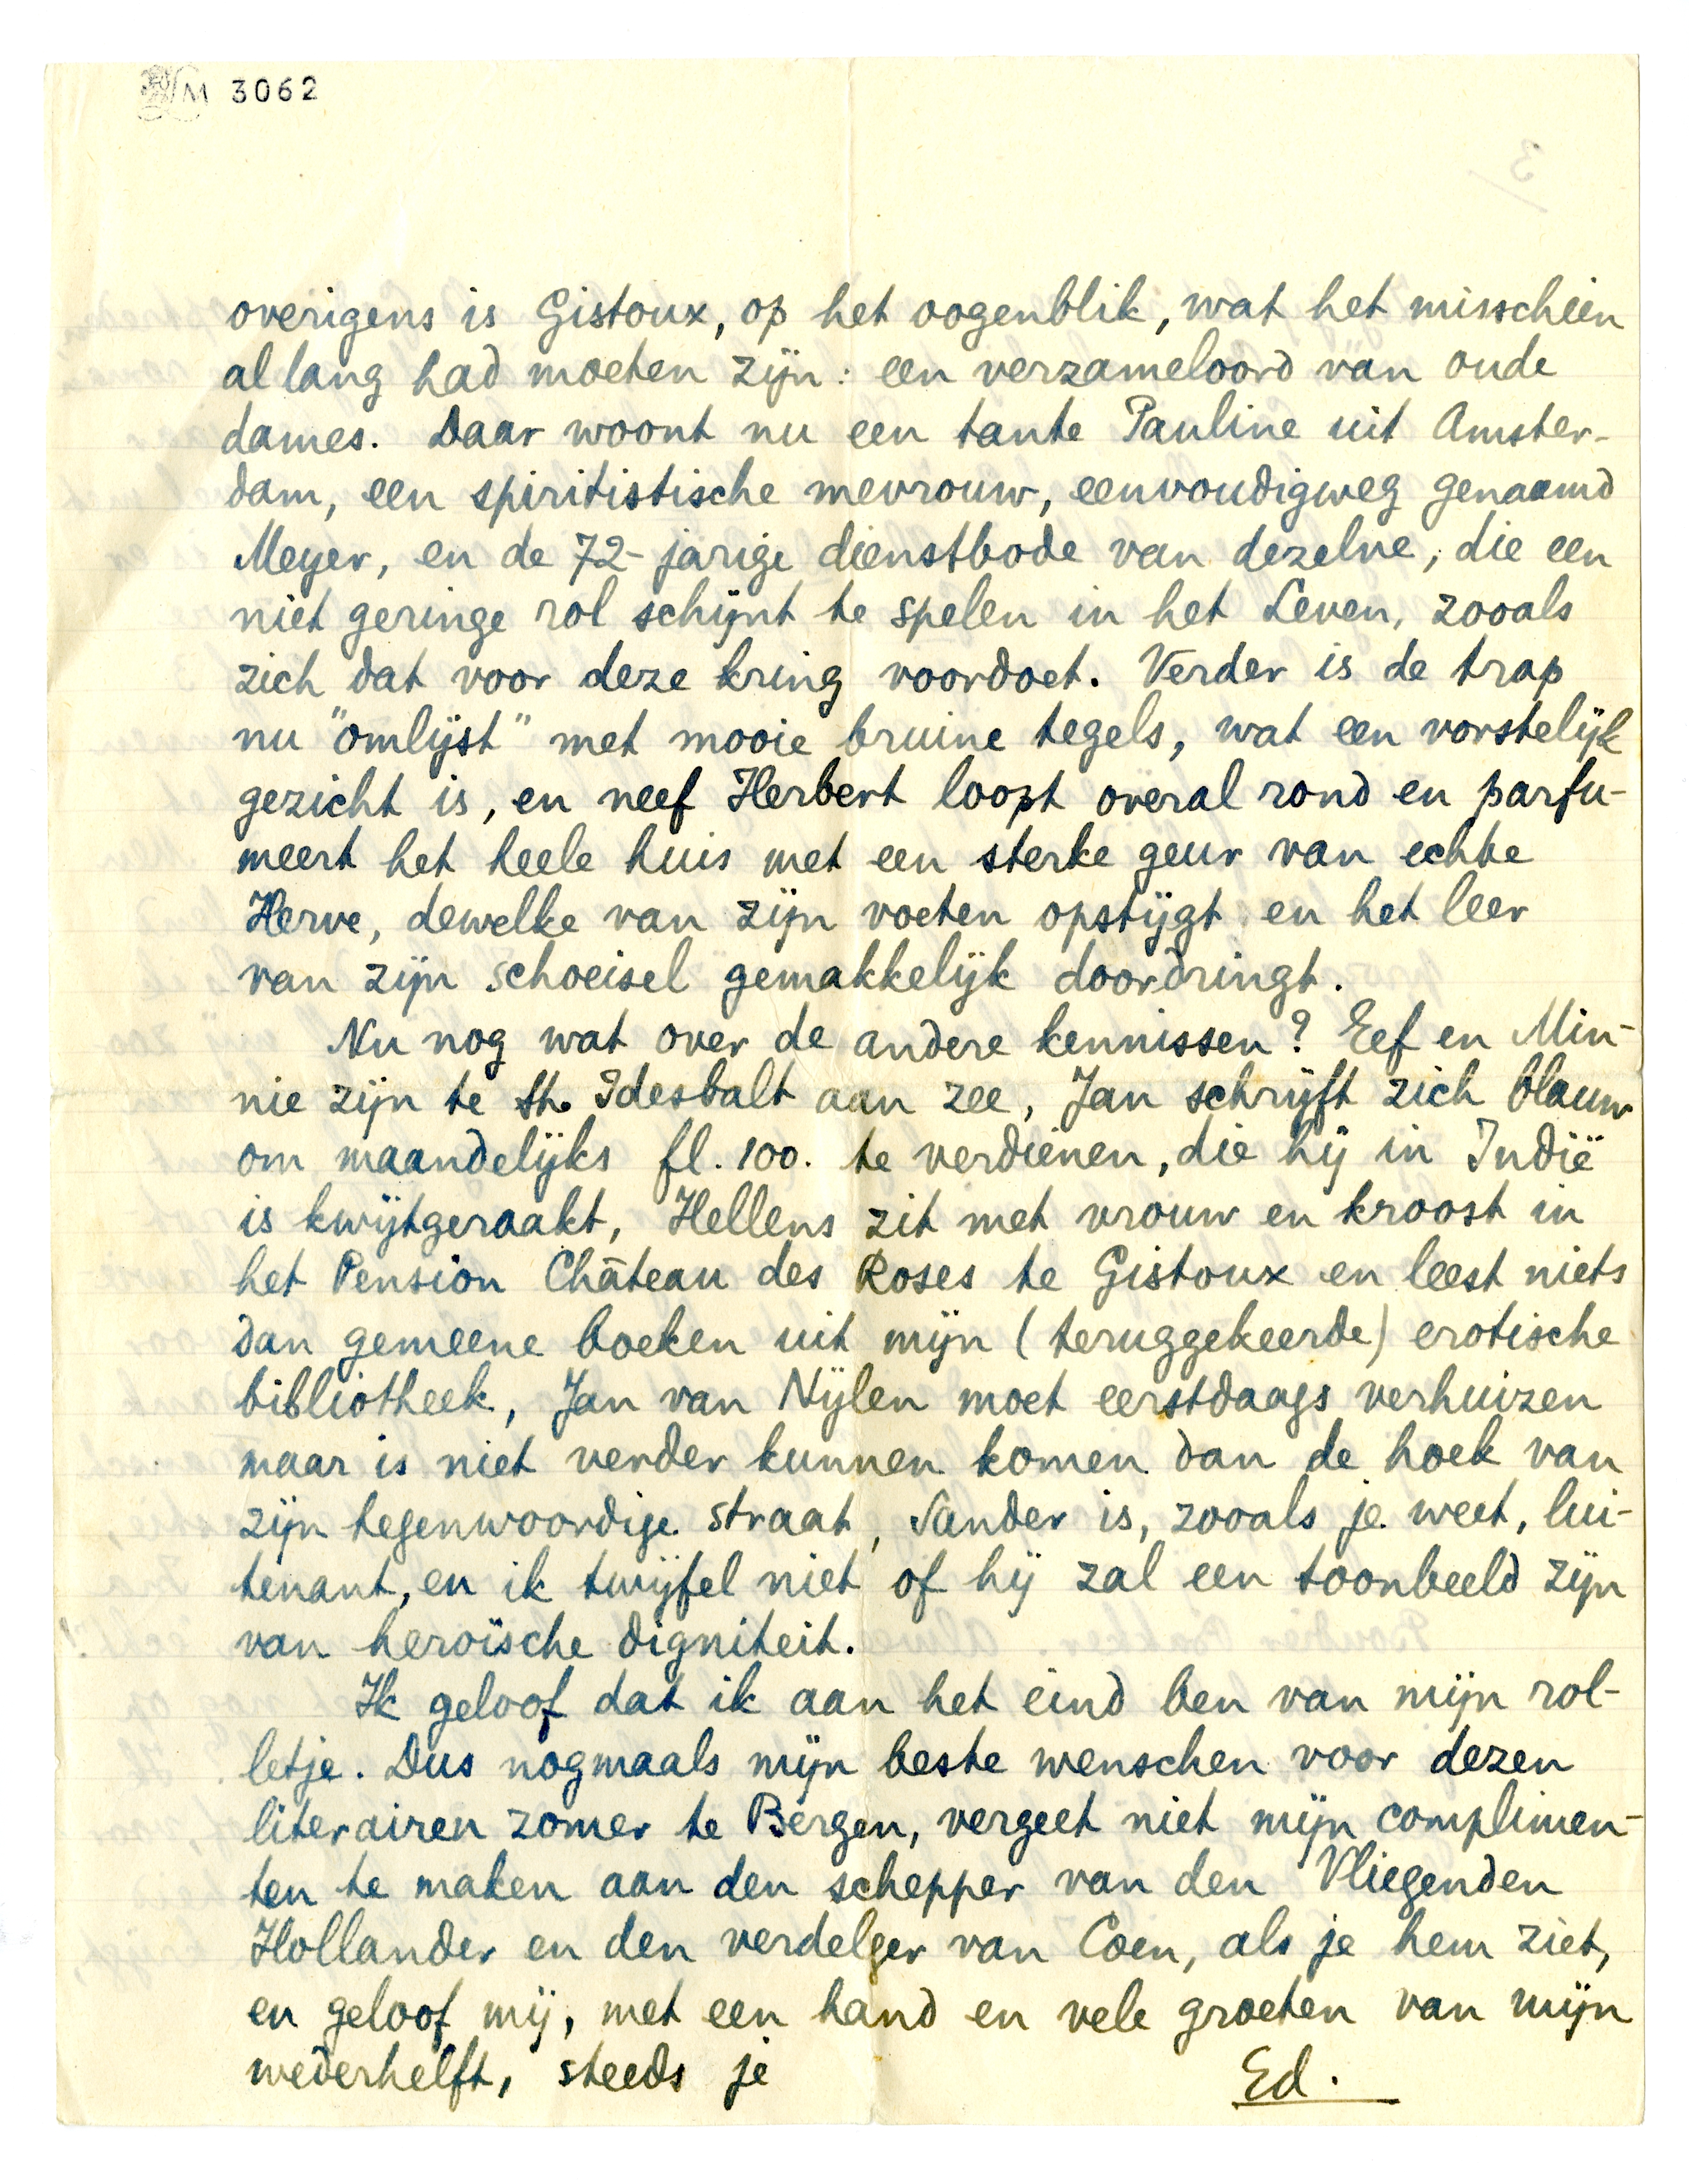 M 3062
overigens is Gistoux, op het oogenblik, wat het misschien
al lang had moeten zijn: een verzameloord van oude
dames. Daar woont nu een tante Pauline uit Amster-
dam, een spiritistische mevrouw, eenvoudigweg genaamd
Meyer, en de 72-jarige dienstbode van dezelve, die een
niet geringe rol schijnt te spelen in het Leven, zooals
zich dat voor deze kring voordoet. Verder is de trap
nu "omlijst" met mooie bruine tegels, wat een vorstelijk
gezicht is, en neef Herbert loopt overal rond en parfu-
meert het heele huis met een sterke geur van echte
Herve, dewelke van zijn voeten opstijgt en het leer
van zijn schoeisel gemakkelijk doordringt.
Nu nog wat over de andere kennissen? Eef en Min-
nie zijn te St. Idesbalt aan zee, Jan schrijft zich blauw
om maandelijks fl. 100. te verdienen, die hij in Indië
is kwijtgeraakt, Hellens zit met vrouw en kroost in
het Pension Château des Roses te Gistoux en leest niets
dan gemeene boeken uit mijn (teruggekeerde) erotische
bibliotheek, Jan van Nijlen moet eerstdaags verhuizen
maar is niet verder kunnen komen dan de hoek van
zijn tegenwoordige straat, Sander is, zooals je weet, lui-
tenant, en ik twijfel niet of hij zal een toonbeeld zijn
van heroïsche digniteit.
Ik geloof dat ik aan het eind ben van mijn rol-
letje. Dus nogmaals mijn beste wenschen voor dezen
literairen zomer te Bergen, vergeet niet mijn complimen-
ten te maken aan den schepper van den Vliegenden
Hollander en den verdelger van Coen, als je hem ziet,
en geloof mij, met een hand en vele groeten van mijn
wederhelft, steeds je
Ed.
3